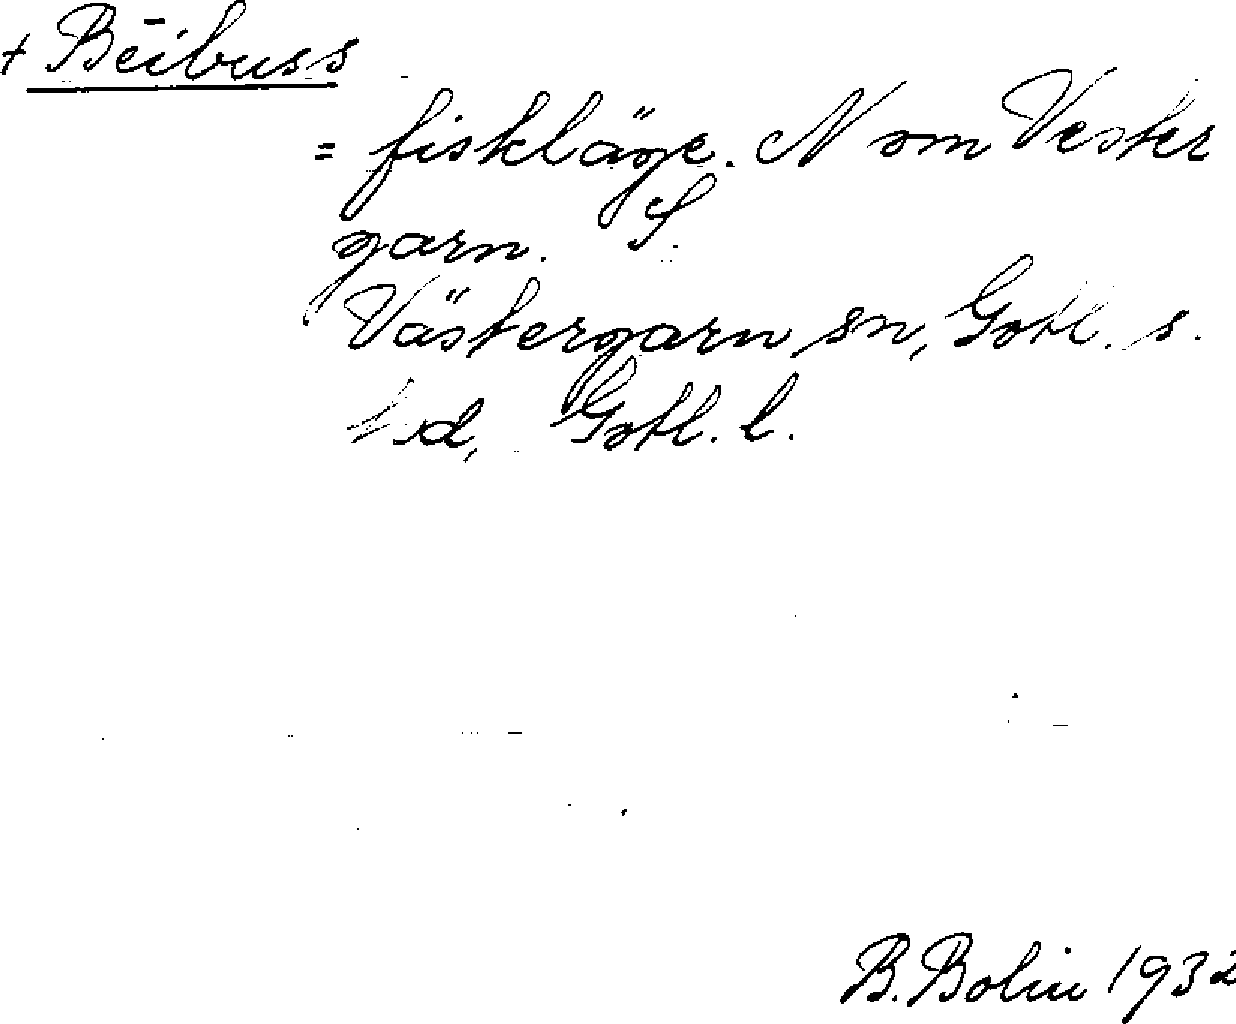 + Bēibuss
= fiskläge. N om Vester
garn. S.
Västergarn sn, Gotl. s.
hd, Gotl. l.
B. Bolin 1932